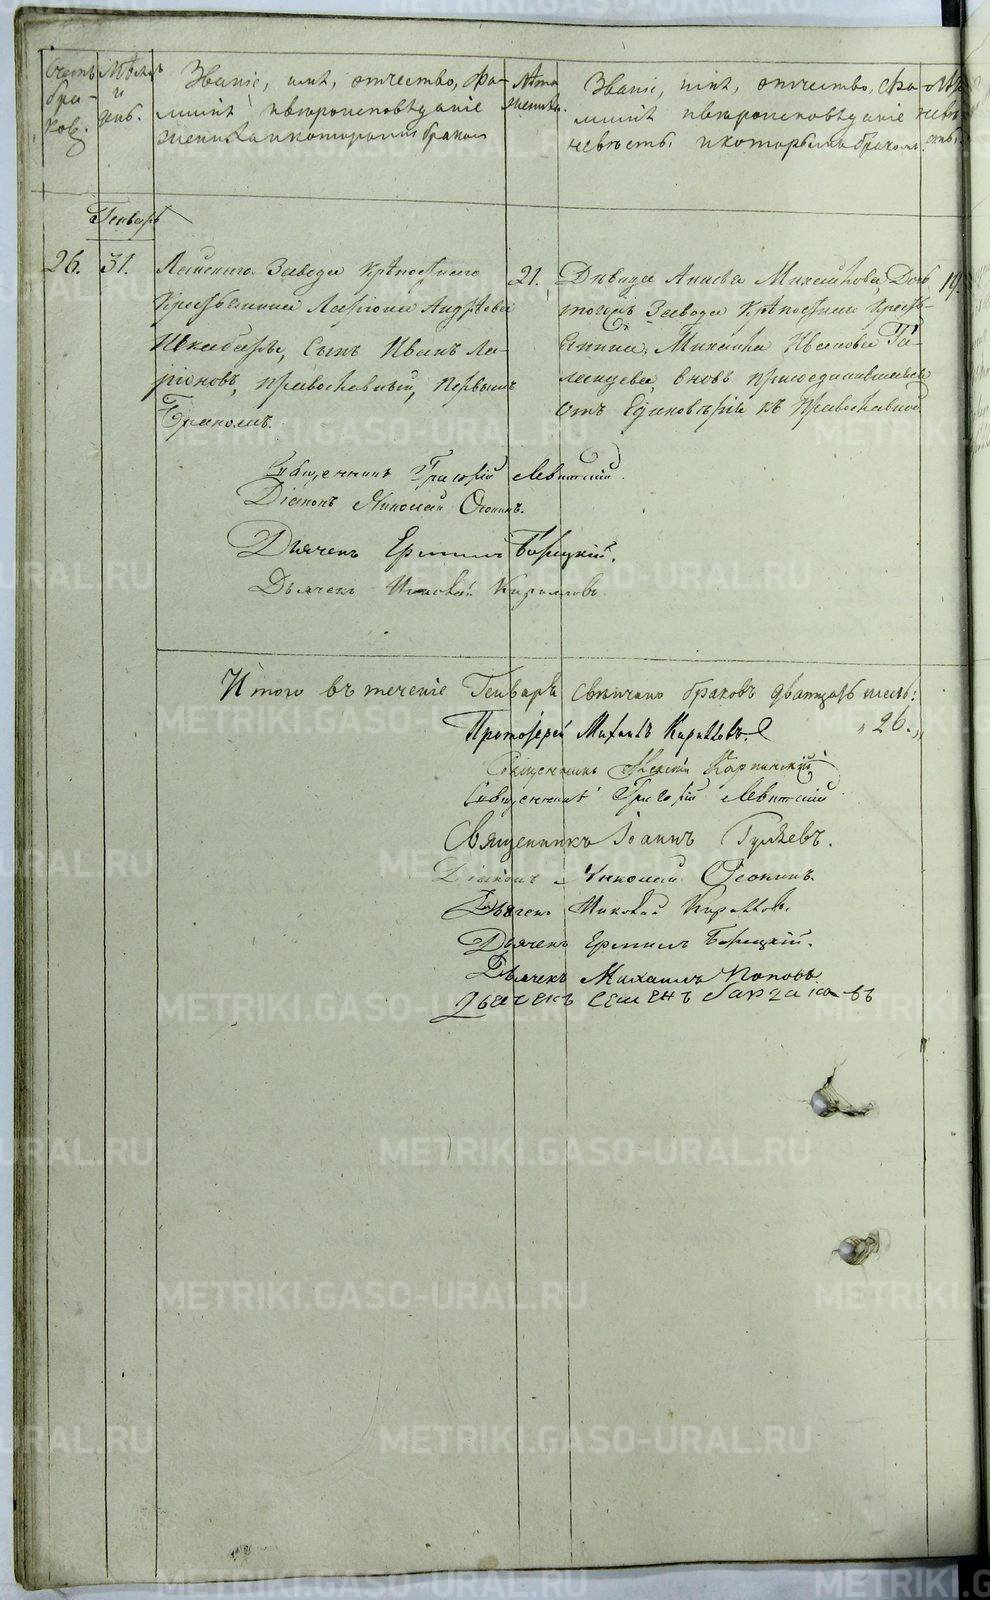 Счетъ бра-ков.
Мѣсяцъ и днѣ.
Званіе, имя, отчество, фа-
милія и вѣроисповѣданіе
жениха и которымъ бракомъ
Лѣта жениха.
Званіе, имя, отчество, фа-
милія и вѣроисповѣданіе
невѣсты и которымъ бракомъ.
Генварь
26. 31.
Лайскаго Завода крѣпостнаго
крестьянина Ларіона Андрѣева
Шкабара, сынъ Иванъ Ла-
ріоновъ, православный, первымъ
бракомъ.
21.
Дѣвица Анисья Михайлова
Завода крѣпостнаго кресть-
янина, Михаила Иванова Га-
ланцева, вновь присоединившаяся
отъ Единовѣрія къ православной
19.
Священникъ Григорій Левитскій.
Діаконъ Николай Осокинъ.
Дьячекъ Ермилъ Борецкій.
Дьячекъ Кирилловъ
Итого въ теченіе Генваря свѣнчано браковъ двадцать шесть:
Протоіерей Михаилъ Кирилловъ. „26.„
Священникъ Алексѣй Карпинскій
Священникъ Григорій Левитскій
Священникъ Іоаннъ Гуляевъ.
Діаконъ Николай Осокинъ.
Дьячекъ Кирилловъ.
Дьячекъ Ермилъ Борецкій.
Дьячекъ Михаилъ Поповъ
Дьячекъ Семенъ
METRIKI.GASO-URAL.RU